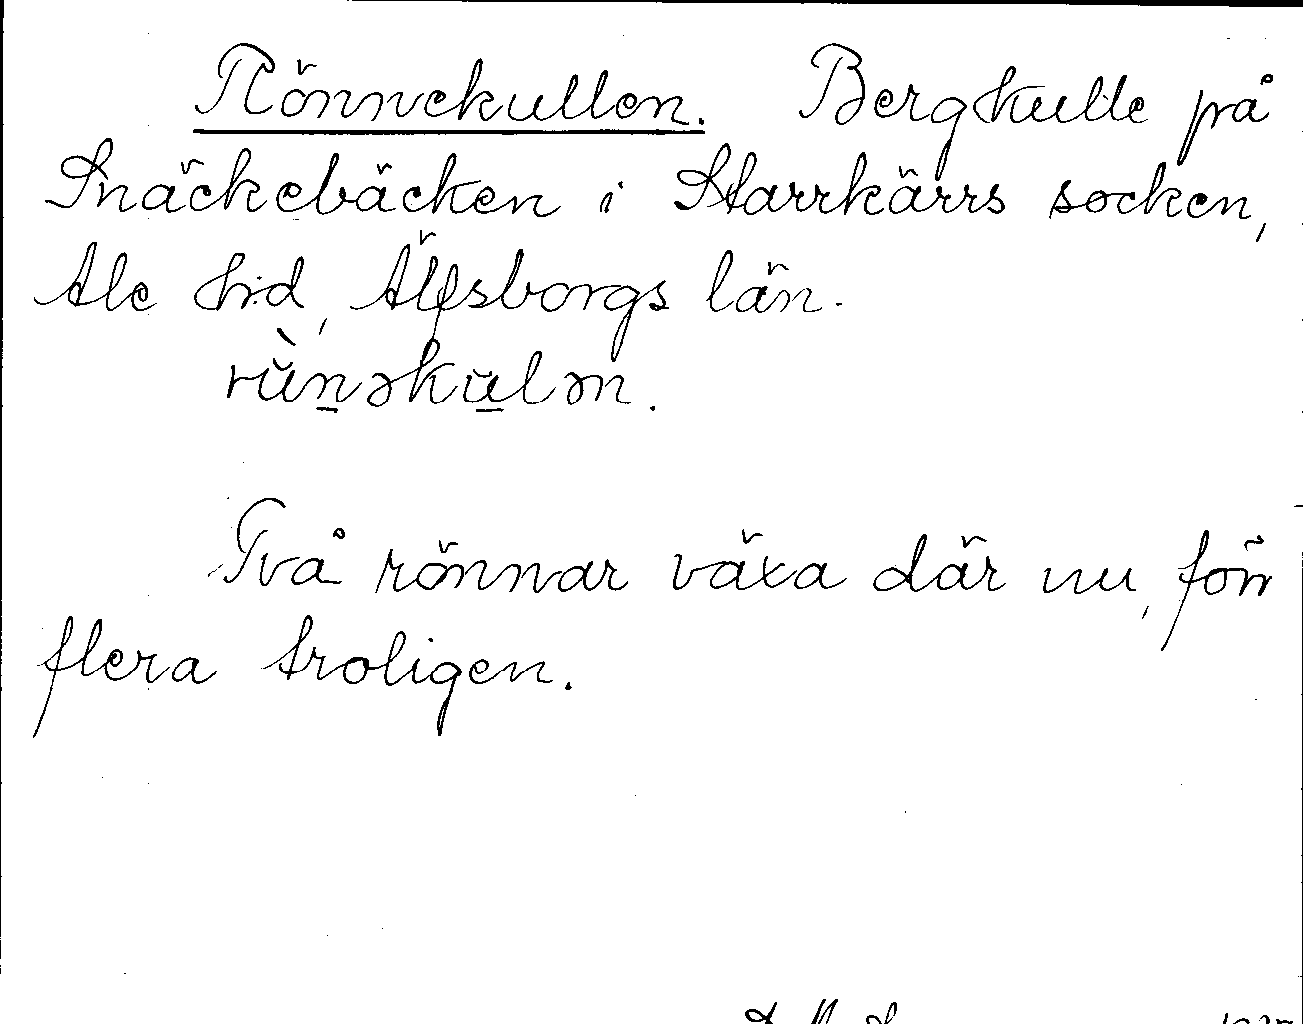 Rönnekullen. Bergkulle på
Snäckebäcken i Starrkärrs socken,
Ale hd, Älfsborgs län.
rùn̠əku̠lən.
Två rönnar växa där nu, förr
flera troligen.